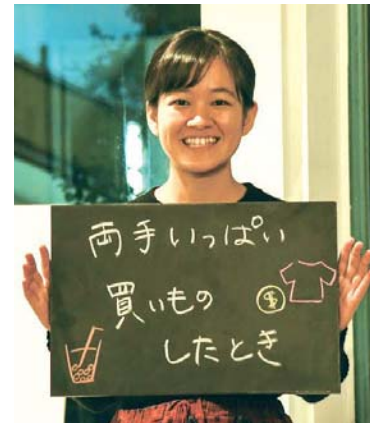 両手いっぱい
買いもの
したとき
$